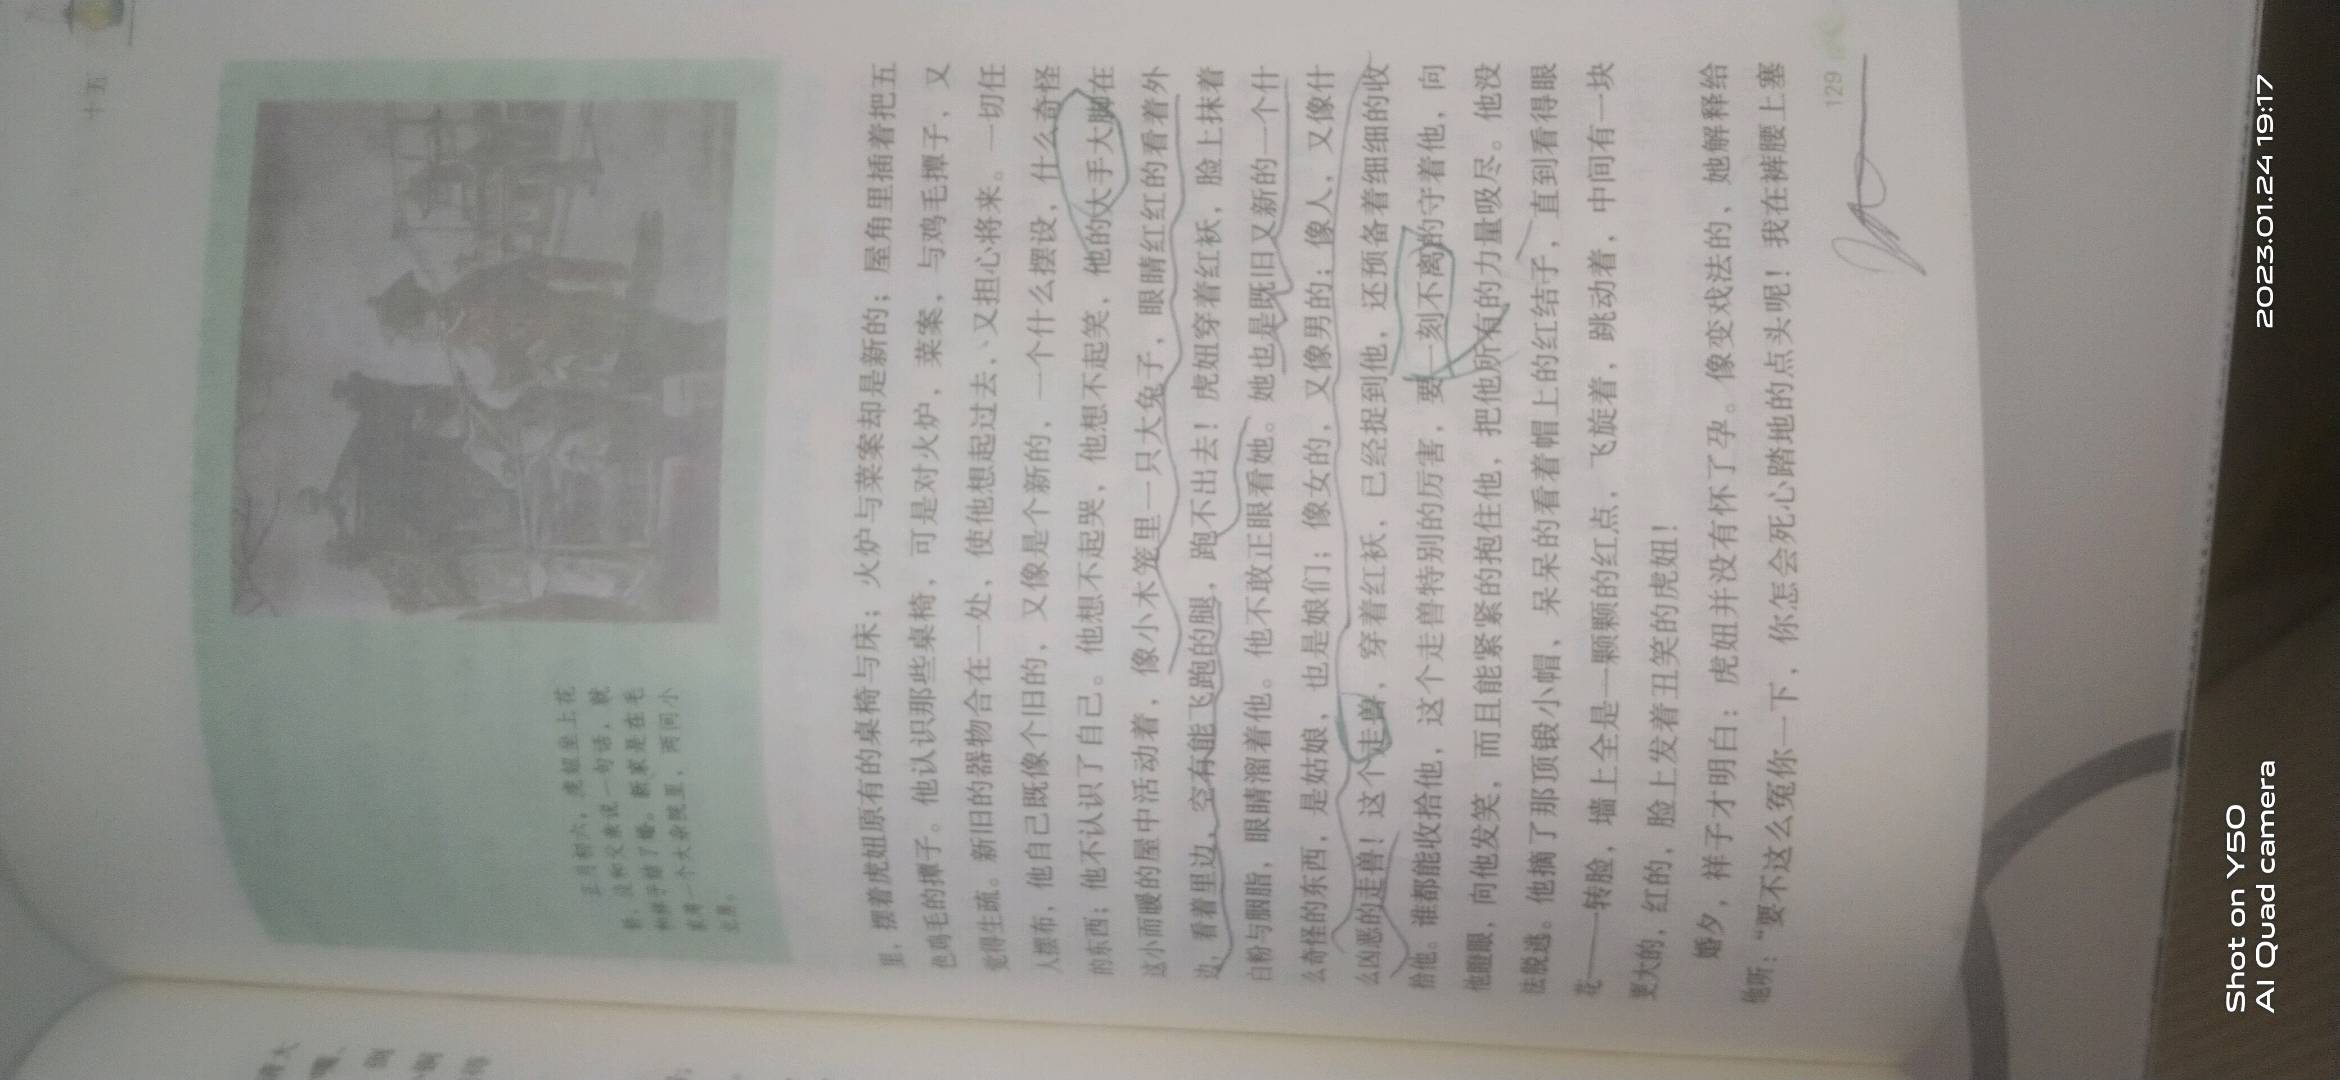 十五
正月初六，虎妞坐上花
轿，没和父亲说一句话，就
和祥子结了婚。新家是在毛
家湾一个大杂院里，两间小
北房。
里，摆着虎妞原有的桌椅与床；火炉与菜案却是新的；屋角里插着把五
色鸡毛的掸子。他认识那些桌椅，可是对火炉，菜案，与鸡毛掸子，又
觉得生疏。新旧的器物合在一处，使他想起过去，又担心将来。一切任
人摆布，他自己既像个旧的，又像是个新的，一个什么摆设，什么奇怪
的东西；他不认识了自己。他想不起哭，他想不起笑，他的大手大脚在
这小而暖的屋中活动着，像小木笼里一只大兔子，眼睛红红的看着外
边，看着里边，空有能飞跑的腿，跑不出去！虎妞穿着红袄，脸上抹着
白粉与胭脂，眼睛溜着他。他不敢正眼看她。她也是既旧又新的一个什
么奇怪的东西，是姑娘，也是娘们；像女的，又像男的；像人，又像什
么凶恶的走兽！这个走兽，穿着红袄，已经捉到他，还预备着细细的收
拾他。谁都能收拾他，这个走兽特别的厉害，要一刻不离的守着他，向
他瞪眼，向他发笑，而且能紧紧的抱住他，把他所有的力量吸尽。他没
法脱逃。他摘了那顶缎小帽，呆呆的看着帽上的红结子，直到看得眼
花——一转脸，墙上全是一颗颗的红点，飞旋着，跳动着，中间有一块
更大的，红的，脸上发着丑笑的虎妞！
婚夕，祥子才明白：虎妞并没有怀了孕。像变戏法的，她解释给
他听：“要不这么冤你一下，你怎会死心踏地的点头呢！我在裤腰上塞
129
2023.01.24 19:17
Shot on Y50
AI Quad camera